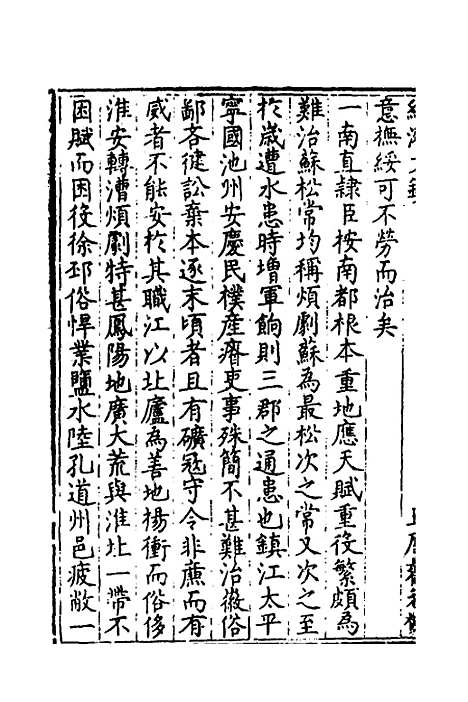 意撫綏可不勞而治矣
一南直隸臣按南都根本重地應天賦重役繁頗為
難治蘇松常均稱煩劇蘇為最松次之常又次之至
扵歳遭水患時增軍餉則三郡之通患也鎮江太平
寧國池州安慶民樸產瘠吏事殊簡不甚難治徽俗
鄙吝健訟棄本逐末頃者且有礦冦守令非廉而有
威者不能安扵其職江以北廬為善地揚衝而俗侈
淮安轉漕煩劇特甚鳳陽地廣大荒與淮北一帶不
困賦而困役徐邳俗悍業鹽水陸孔道州邑疲敝一